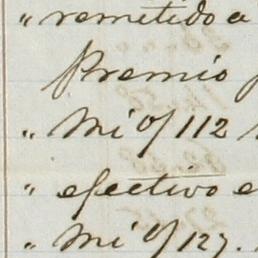 " remetido a
Premio
" Mi o/ 112
" efectivo e
" Mi o/ 127.